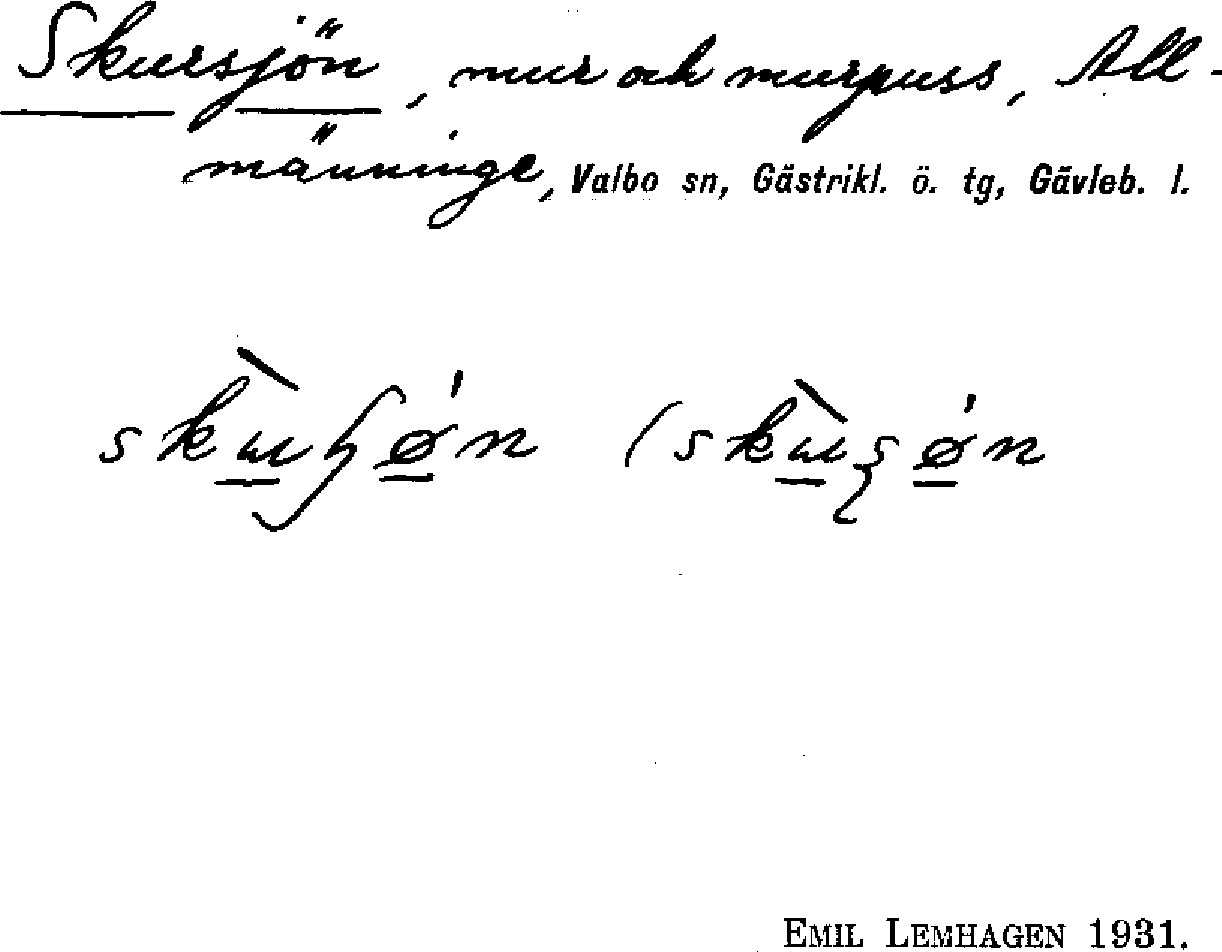 Skursjön, mur och murpuss, All-
männinge, Valbo sn, Gästrikl. ö. tg, Gävleb. l.
EMIL LEMHAGEN 1931.